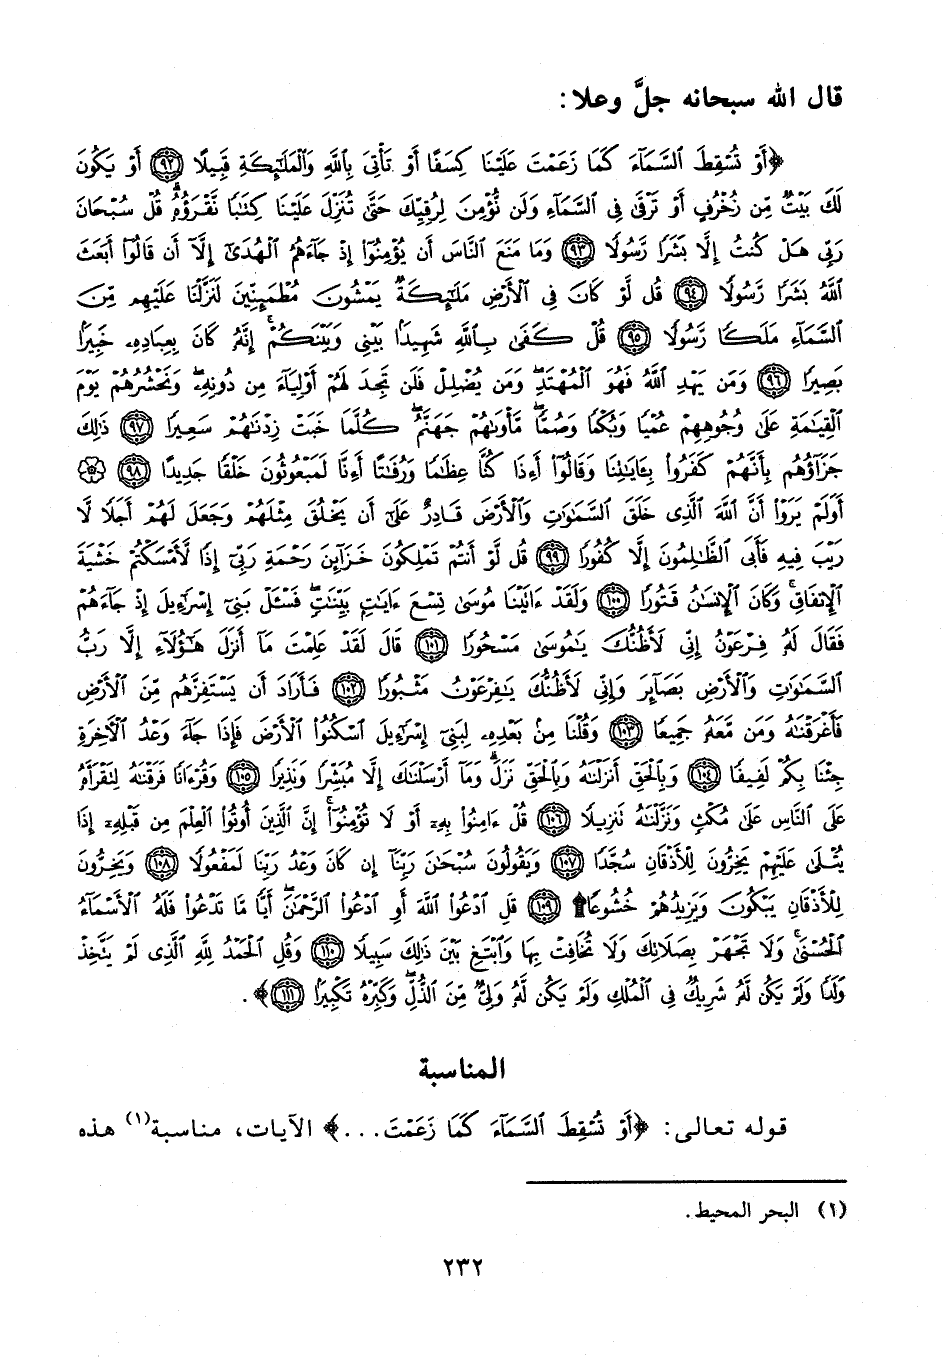 قال الله سبحانه جلَّ وعلا:
﴿أَوْ تُسْقِطَ ٱلسَّمَآءَ كَمَا زَعَمْتَ عَلَيْنَا كِسَفًا أَوْ تَأْتِيَ بِٱللَّهِ وَٱلْمَلَٰٓئِكَةِ قَبِيلًا ٩٢ أَوْ يَكُونَ
لَكَ بَيْتٌ مِّن زُخْرُفٍ أَوْ تَرْقَىٰ فِى ٱلسَّمَآءِ وَلَن نُّؤْمِنَ لِرُقِيِّكَ حَتَّىٰ تُنَزِّلَ عَلَيْنَا كِتَٰبًا نَّقْرَؤُهُۥ قُلْ سُبْحَانَ
رَبِّى هَلْ كُنتُ إِلَّا بَشَرًا رَّسُولًا ٩٣ وَمَا مَنَعَ ٱلنَّاسَ أَن يُؤْمِنُوٓا۟ إِذْ جَآءَهُمُ ٱلْهُدَىٰٓ إِلَّآ أَن قَالُوٓا۟ أَبَعَثَ
ٱللَّهُ بَشَرًا رَّسُولًا ٩٤ قُل لَّوْ كَانَ فِى ٱلْأَرْضِ مَلَٰٓئِكَةٌ يَمْشُونَ مُطْمَئِنِّينَ لَنَزَّلْنَا عَلَيْهِم مِّنَ
ٱلسَّمَآءِ مَلَكًا رَّسُولًا ٩٥ قُلْ كَفَىٰ بِٱللَّهِ شَهِيدًۢا بَيْنِى وَبَيْنَكُمْ ۚ إِنَّهُۥ كَانَ بِعِبَادِهِۦ خَبِيرًۢا
بَصِيرًا ٩٦ وَمَن يَهْدِ ٱللَّهُ فَهُوَ ٱلْمُهْتَدِ ۖ وَمَن يُضْلِلْ فَلَن تَجِدَ لَهُمْ أَوْلِيَآءَ مِن دُونِهِۦ ۖ وَنَحْشُرُهُمْ يَوْمَ
ٱلْقِيَٰمَةِ عَلَىٰ وُجُوهِهِمْ عُمْيًا وَبُكْمًا وَصُمًّا ۖ مَّأْوَىٰهُمْ جَهَنَّمُ ۖ كُلَّمَا خَبَتْ زِدْنَٰهُمْ سَعِيرًا ٩٧ ذَٰلِكَ
جَزَآؤُهُم بِأَنَّهُمْ كَفَرُوا۟ بِـَٔايَٰتِنَا وَقَالُوٓا۟ أَءِذَا كُنَّا عِظَٰمًا وَرُفَٰتًا أَءِنَّا لَمَبْعُوثُونَ خَلْقًا جَدِيدًا ٩٨
أَوَلَمْ يَرَوْا۟ أَنَّ ٱللَّهَ ٱلَّذِى خَلَقَ ٱلسَّمَٰوَٰتِ وَٱلْأَرْضَ قَادِرٌ عَلَىٰٓ أَن يَخْلُقَ مِثْلَهُمْ وَجَعَلَ لَهُمْ أَجَلًا لَّا
رَيْبَ فِيهِ فَأَبَى ٱلظَّٰلِمُونَ إِلَّا كُفُورًا ٩٩ قُل لَّوْ أَنتُمْ تَمْلِكُونَ خَزَآئِنَ رَحْمَةِ رَبِّىٓ إِذًا لَّأَمْسَكْتُمْ خَشْيَةَ
ٱلْإِنفَاقِ ۚ وَكَانَ ٱلْإِنسَٰنُ قَتُورًا ١٠٠ وَلَقَدْ ءَاتَيْنَا مُوسَىٰ تِسْعَ ءَايَٰتٍۭ بَيِّنَٰتٍ ۖ فَسْـَٔلْ بَنِىٓ إِسْرَٰٓءِيلَ إِذْ جَآءَهُمْ
فَقَالَ لَهُۥ فِرْعَوْنُ إِنِّى لَأَظُنُّكَ يَٰمُوسَىٰ مَسْحُورًا ١٠١ قَالَ لَقَدْ عَلِمْتَ مَآ أَنزَلَ هَٰٓؤُلَآءِ إِلَّا رَبُّ
ٱلسَّمَٰوَٰتِ وَٱلْأَرْضِ بَصَآئِرَ وَإِنِّى لَأَظُنُّكَ يَٰفِرْعَوْنُ مَثْبُورًا ١٠٢ فَأَرَادَ أَن يَسْتَفِزَّهُم مِّنَ ٱلْأَرْضِ
فَأَغْرَقْنَٰهُ وَمَن مَّعَهُۥ جَمِيعًا ١٠٣ وَقُلْنَا مِنۢ بَعْدِهِۦ لِبَنِىٓ إِسْرَٰٓءِيلَ ٱسْكُنُوا۟ ٱلْأَرْضَ فَإِذَا جَآءَ وَعْدُ ٱلْءَاخِرَةِ
جِئْنَا بِكُمْ لَفِيفًا ١٠٤ وَبِٱلْحَقِّ أَنزَلْنَٰهُ وَبِٱلْحَقِّ نَزَلَ ۗ وَمَآ أَرْسَلْنَٰكَ إِلَّا مُبَشِّرًا وَنَذِيرًا ١٠٥ وَقُرْءَانًا فَرَقْنَٰهُ لِتَقْرَأَهُۥ
عَلَى ٱلنَّاسِ عَلَىٰ مُكْثٍ وَنَزَّلْنَٰهُ تَنزِيلًا ١٠٦ قُلْ ءَامِنُوا۟ بِهِۦٓ أَوْ لَا تُؤْمِنُوٓا۟ ۚ إِنَّ ٱلَّذِينَ أُوتُوا۟ ٱلْعِلْمَ مِن قَبْلِهِۦٓ إِذَا
يُتْلَىٰ عَلَيْهِمْ يَخِرُّونَ لِلْأَذْقَانِ سُجَّدًا ١٠٧ وَيَقُولُونَ سُبْحَٰنَ رَبِّنَآ إِن كَانَ وَعْدُ رَبِّنَا لَمَفْعُولًا ١٠٨ وَيَخِرُّونَ
لِلْأَذْقَانِ يَبْكُونَ وَيَزِيدُهُمْ خُشُوعًا ١٠٩ قُلِ ٱدْعُوا۟ ٱللَّهَ أَوِ ٱدْعُوا۟ ٱلرَّحْمَٰنَ ۖ أَيًّا مَّا تَدْعُوا۟ فَلَهُ ٱلْأَسْمَآءُ
ٱلْحُسْنَىٰ ۚ وَلَا تَجْهَرْ بِصَلَاتِكَ وَلَا تُخَافِتْ بِهَا وَٱبْتَغِ بَيْنَ ذَٰلِكَ سَبِيلًا ١١٠ وَقُلِ ٱلْحَمْدُ لِلَّهِ ٱلَّذِى لَمْ يَتَّخِذْ
وَلَدًا وَلَمْ يَكُن لَّهُۥ شَرِيكٌ فِى ٱلْمُلْكِ وَلَمْ يَكُن لَّهُۥ وَلِىٌّ مِّنَ ٱلذُّلِّ ۖ وَكَبِّرْهُ تَكْبِيرًۢا ١١١﴾.
المناسبة
قوله تعالى: ﴿أَوْ تُسْقِطَ ٱلسَّمَآءَ كَمَا زَعَمْتَ...﴾ الآيات، مناسبة(١) هذه
(١) البحر المحيط.
٢٣٢